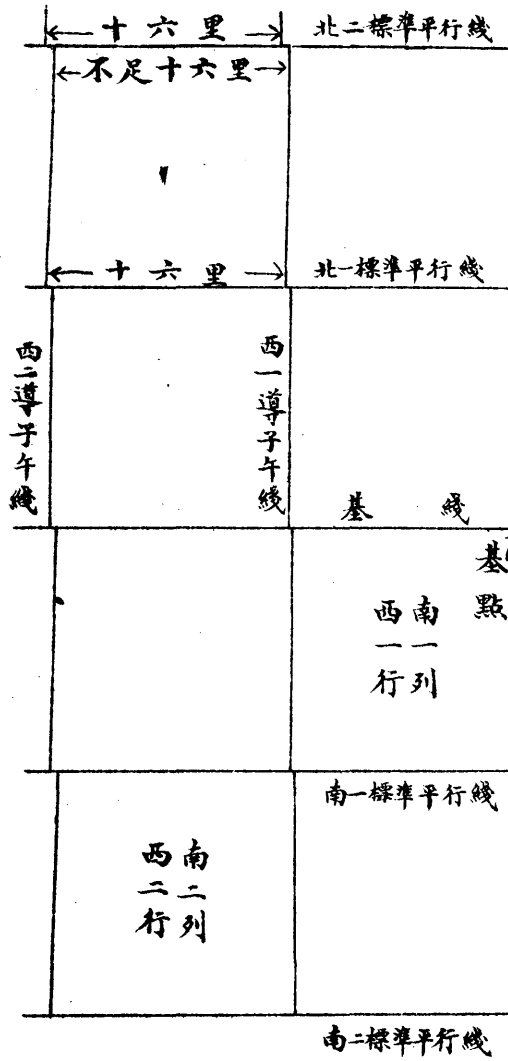 十六里
北二標準平行綫
不足十六里
十六里
北一標準平行綫
西二導子午綫
西一導子午綫
基綫
基點
南一列
西一行
南一標準平行綫
南二列
西二行
南二標準平行綫